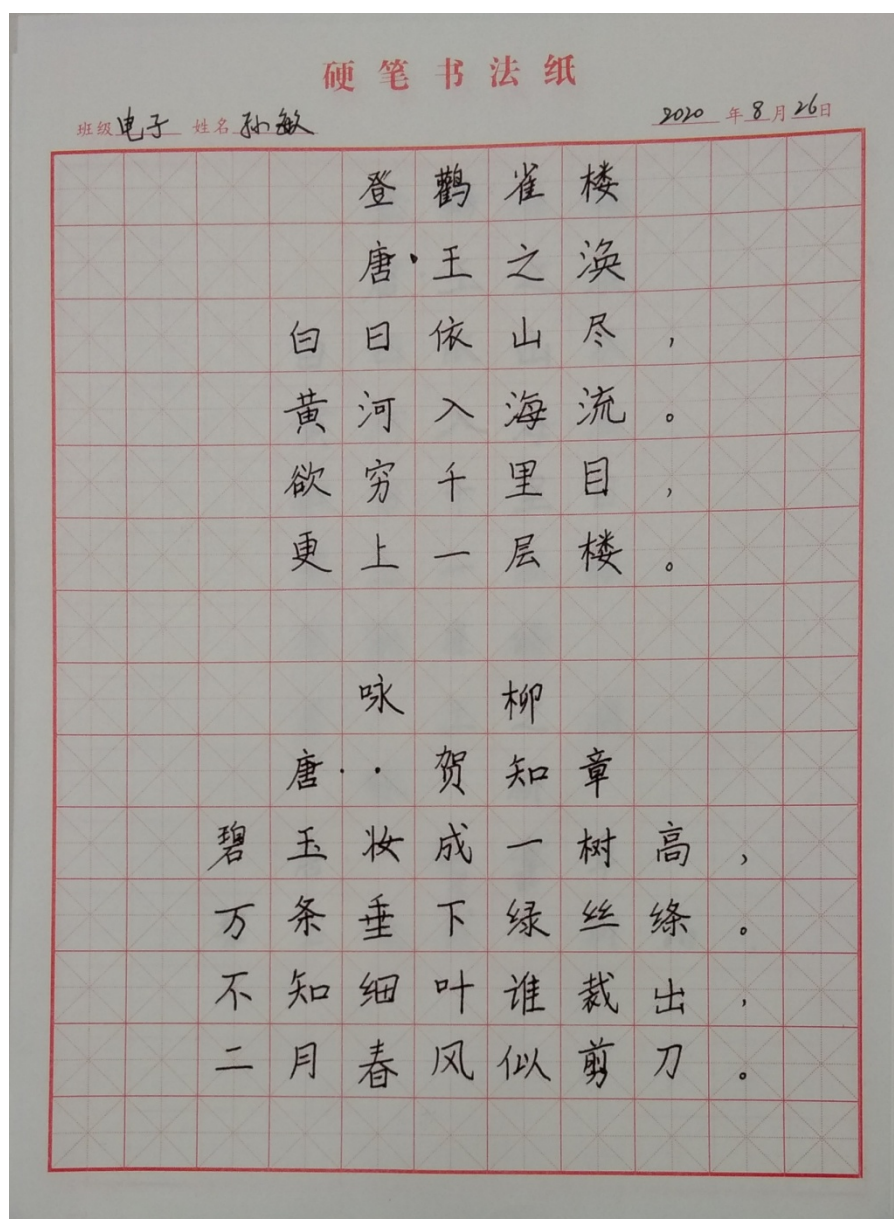 硬笔书法纸
班级 电子 姓名 孙敏 2020 年 8 月 26 日
登鹳雀楼
唐·王之涣
白日依山尽，
黄河入海流。
欲穷千里目，
更上一层楼。
咏柳
唐··贺知章
碧玉妆成一树高，
万条垂下绿丝绦。
不知细叶谁裁出，
二月春风似剪刀。